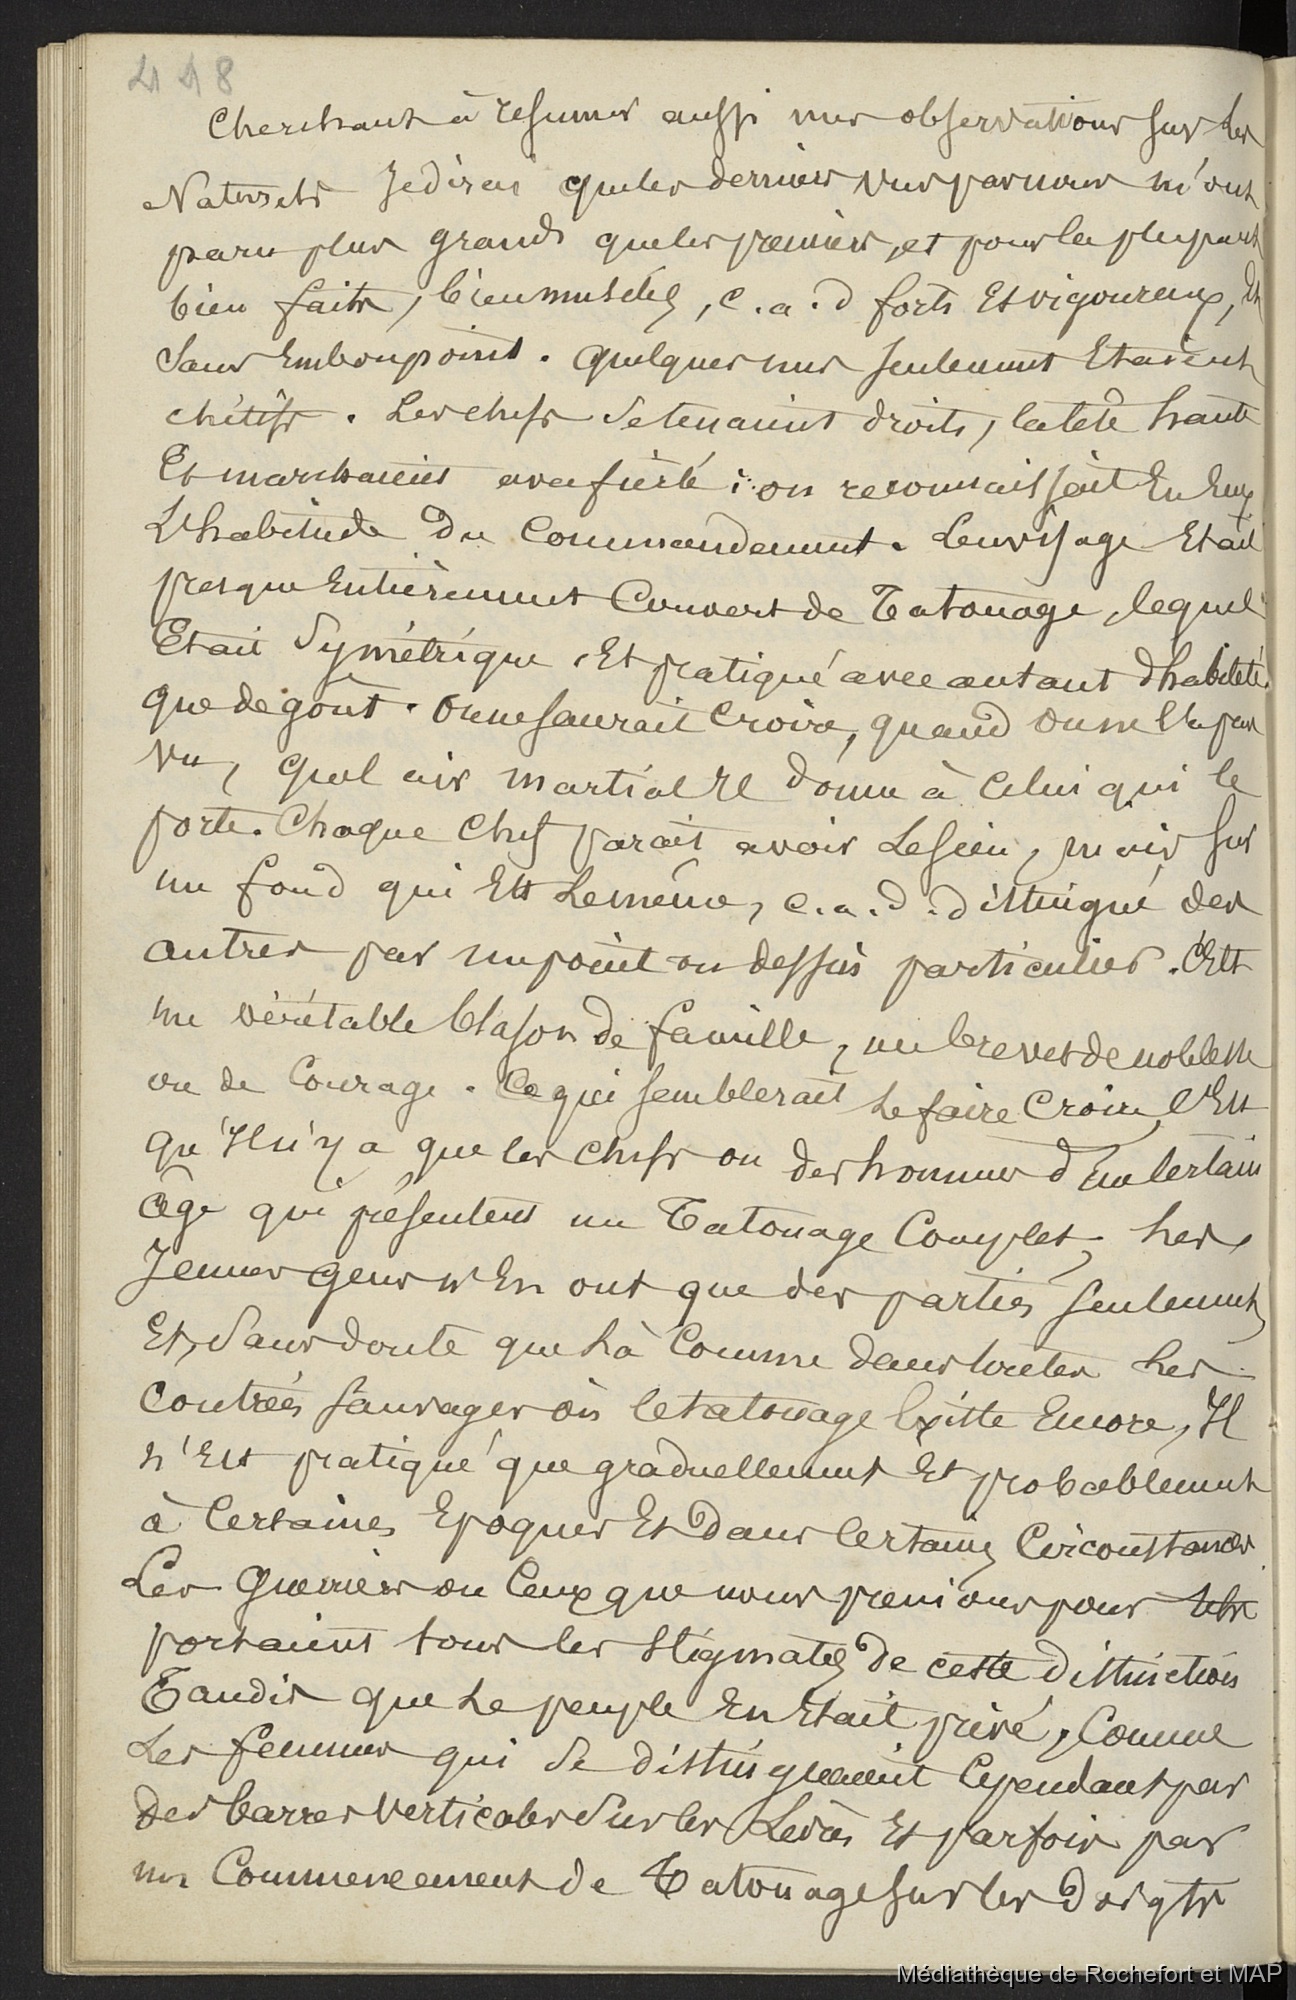 418
Cherchant à résumer aussi mes observations sur les
Naturels Je dirai que les derniers vus par nous m'ont
paru plus grands que les premiers, et pour la plupart
bien faits, bien musclés, c.a.d forts Et vigoureux, Et
sans Embonpoint. quelques uns seulement Etaient
chétifs. Les chefs se tenaient droits, la tete haute
Et marchaient avec fierté : on reconnaissait En Eux
L'habitude du Commandement. Leur visage Etait
presque Entièrement Couvert de Tatouage, lequel
Etait Symétrique, Et pratiqué avec autant d'habileté
que de goût. On ne saurait Croire, quand on ne l'a pas
vu, quel air martial Il donne à Celui qui le
porte. Chaque Chef parait avoir Le sien, mais sur
un fond qui Est Le même, c.a.d. distingué des
autres par un point ou dessin particulier. C'Est
un véritable blason de famille, un brevet de noblesse
ou de Courage. Ce qui semblerait Le faire Croire, C'Est
qu'Il n'y a que les chefs ou des hommes d'un Certain
âge qui présentent un Tatouage Complet, Les
Jeunes gens n'En ont que des parties seulement
Et, sans doute que Là Comme dans toutes Les
contrées sauvages où le tatouage Existe Encore, Il
n'Est pratiqué que graduellement Et probablement
à Certaines Epoques Et Dans Certaines Circonstances
Les Guerriers ou Ceux que nous prenions pour tels
portaient tous les stigmates de cette distinction
Tandis que Le peuple En Etait privé, Comme
Les femmes qui se distinguaient Cependant par
des barres verticales Sur les Levres Et parfois par
un Commencement de Tatouage sur les doigts
Médiathèque de Rochefort et MAP